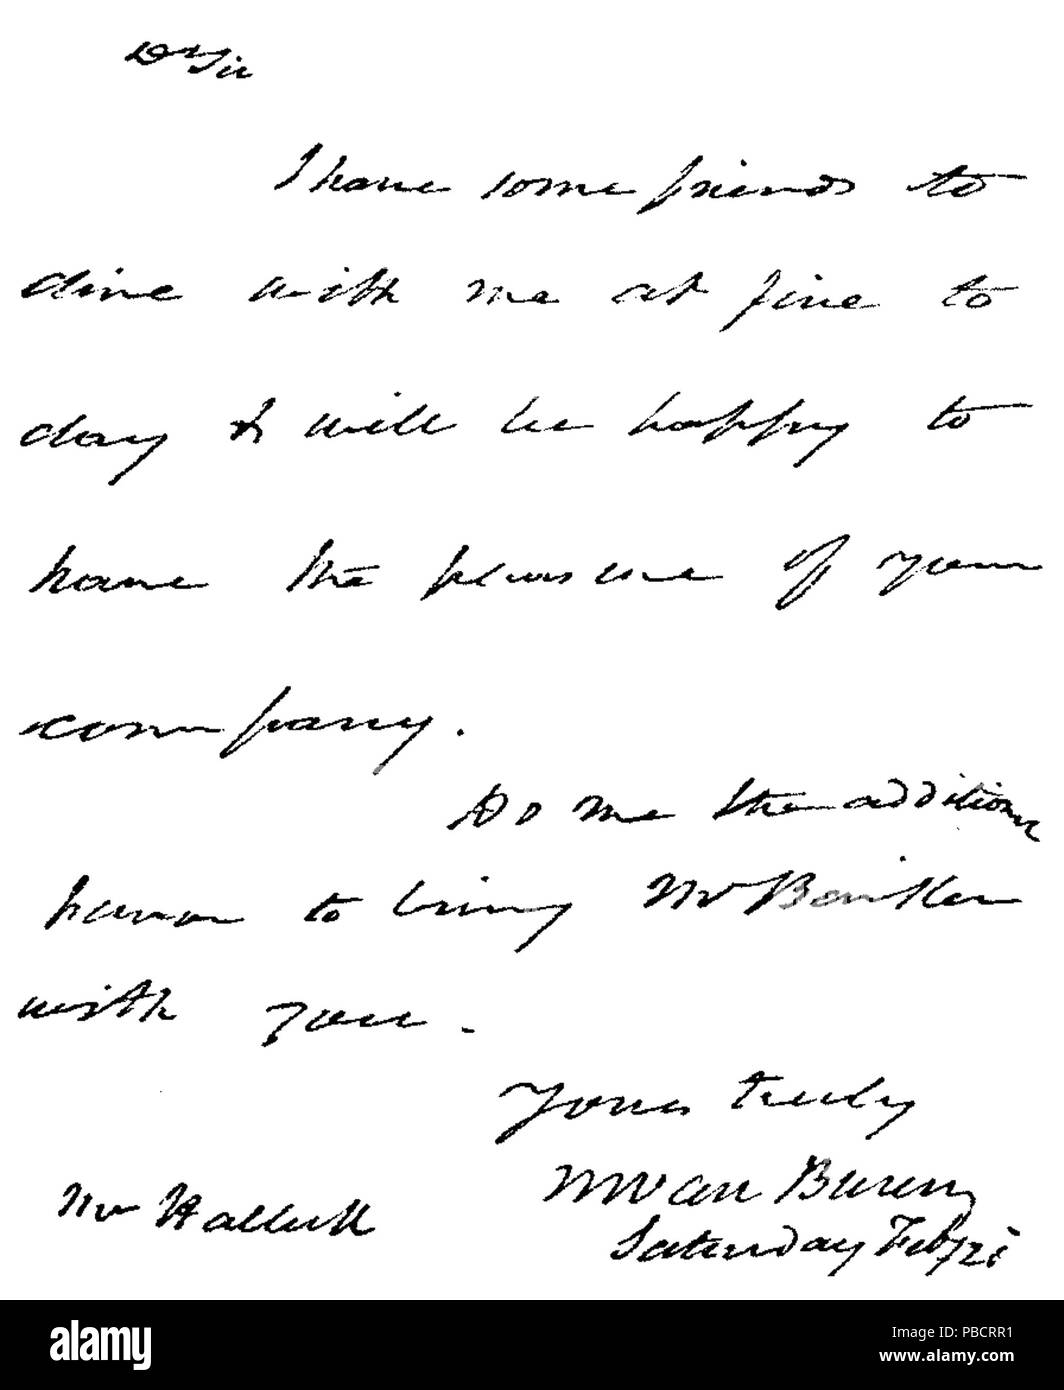 Dr Sir
I have some friends to
dine with me at five to
day & will be happy to
have the pleasure of your
company.
Do me the additional
honor to bring Mr
with you.
Yours truly
M Van Buren
Mr Halleck
Saturday Feby
alamy
Image ID: PBCRR1
www.alamy.com